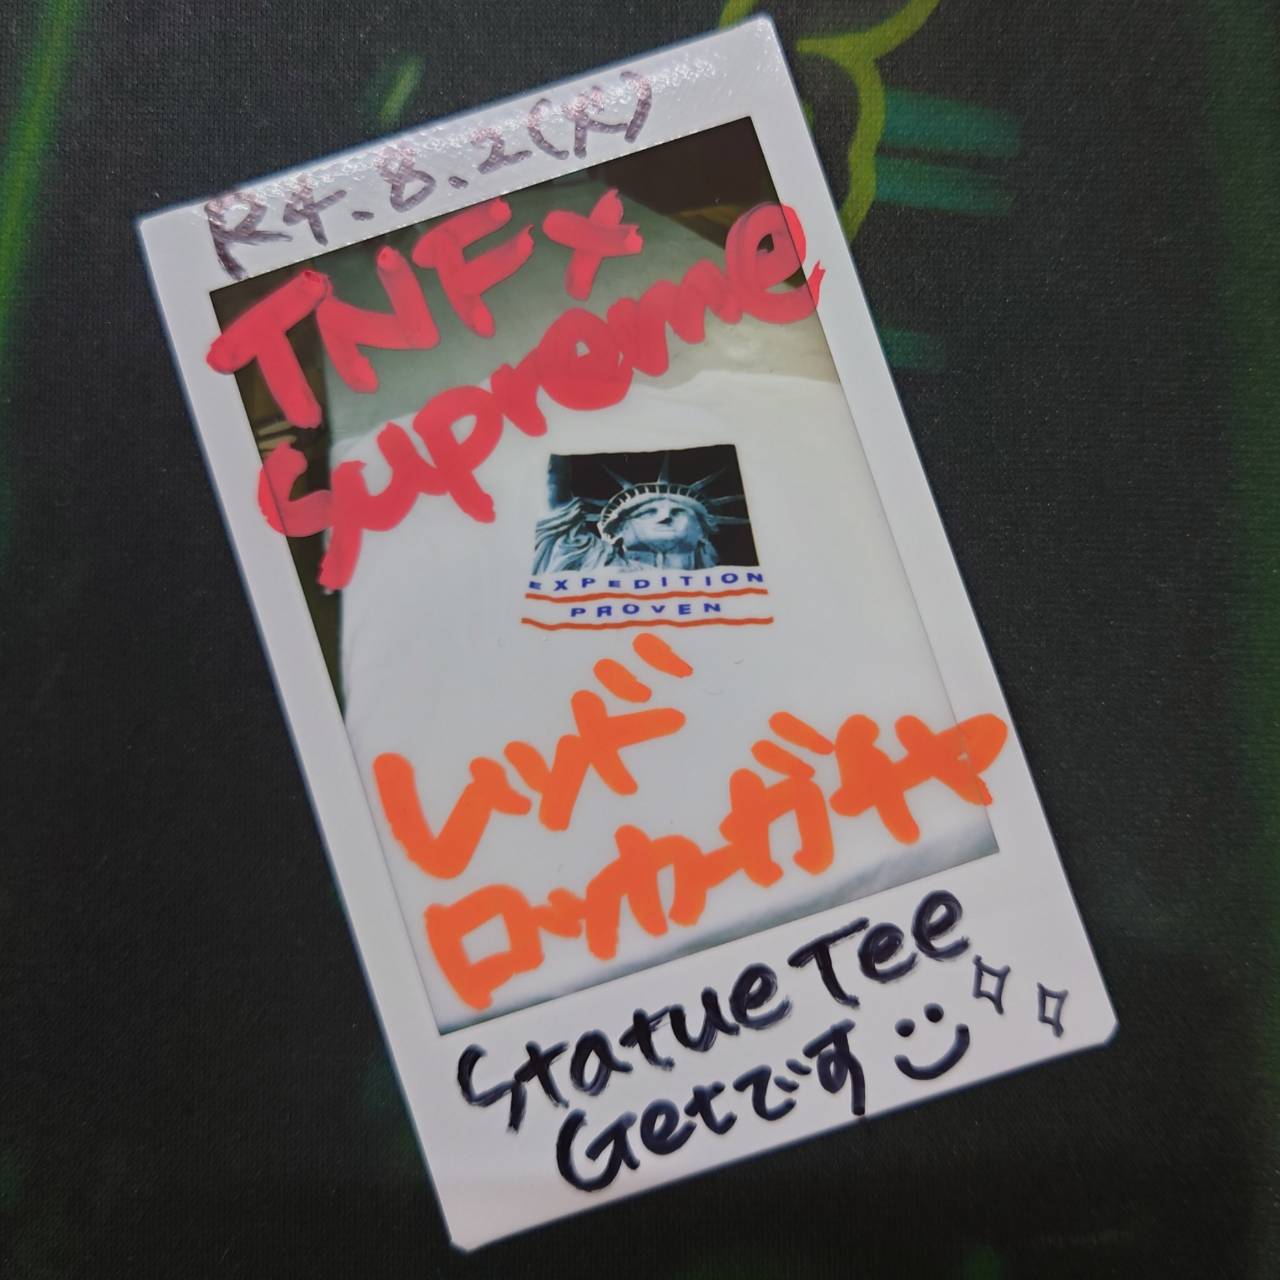 R4.8.2(火)
TNF×
Supreme
EXPEDITION
PROVEN
レッド
ロッカーガチャ
Statue Tee
Getです